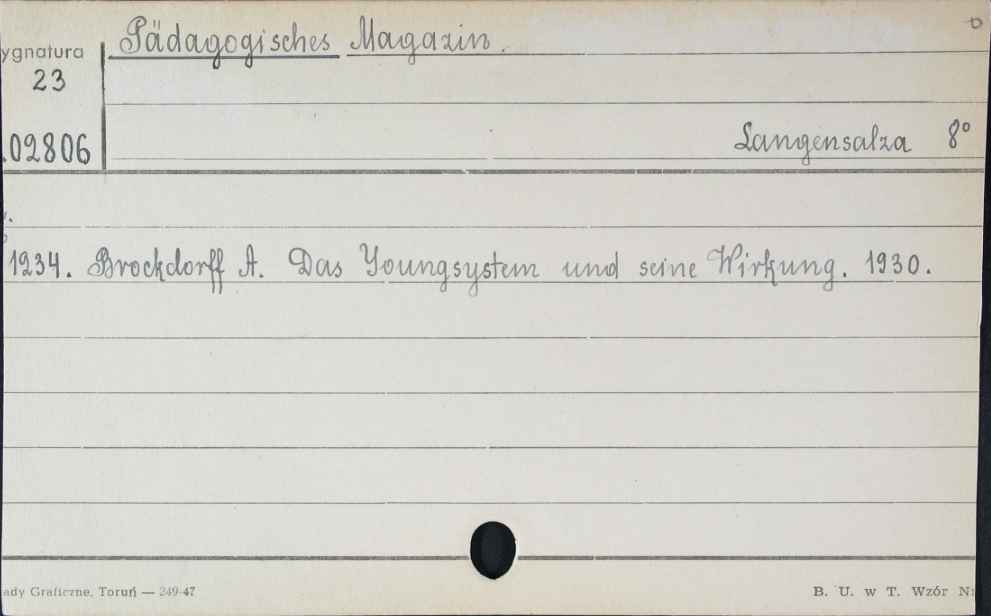 Pädagogisches Magazin.
ygnatura
23
02806
Langensalza 8°
1234. Brockdorff A. Das Youngsystem und seine Wirkung. 1930.
ady Graficzne, Toruń — 249-47
B. U. w T. Wzór N